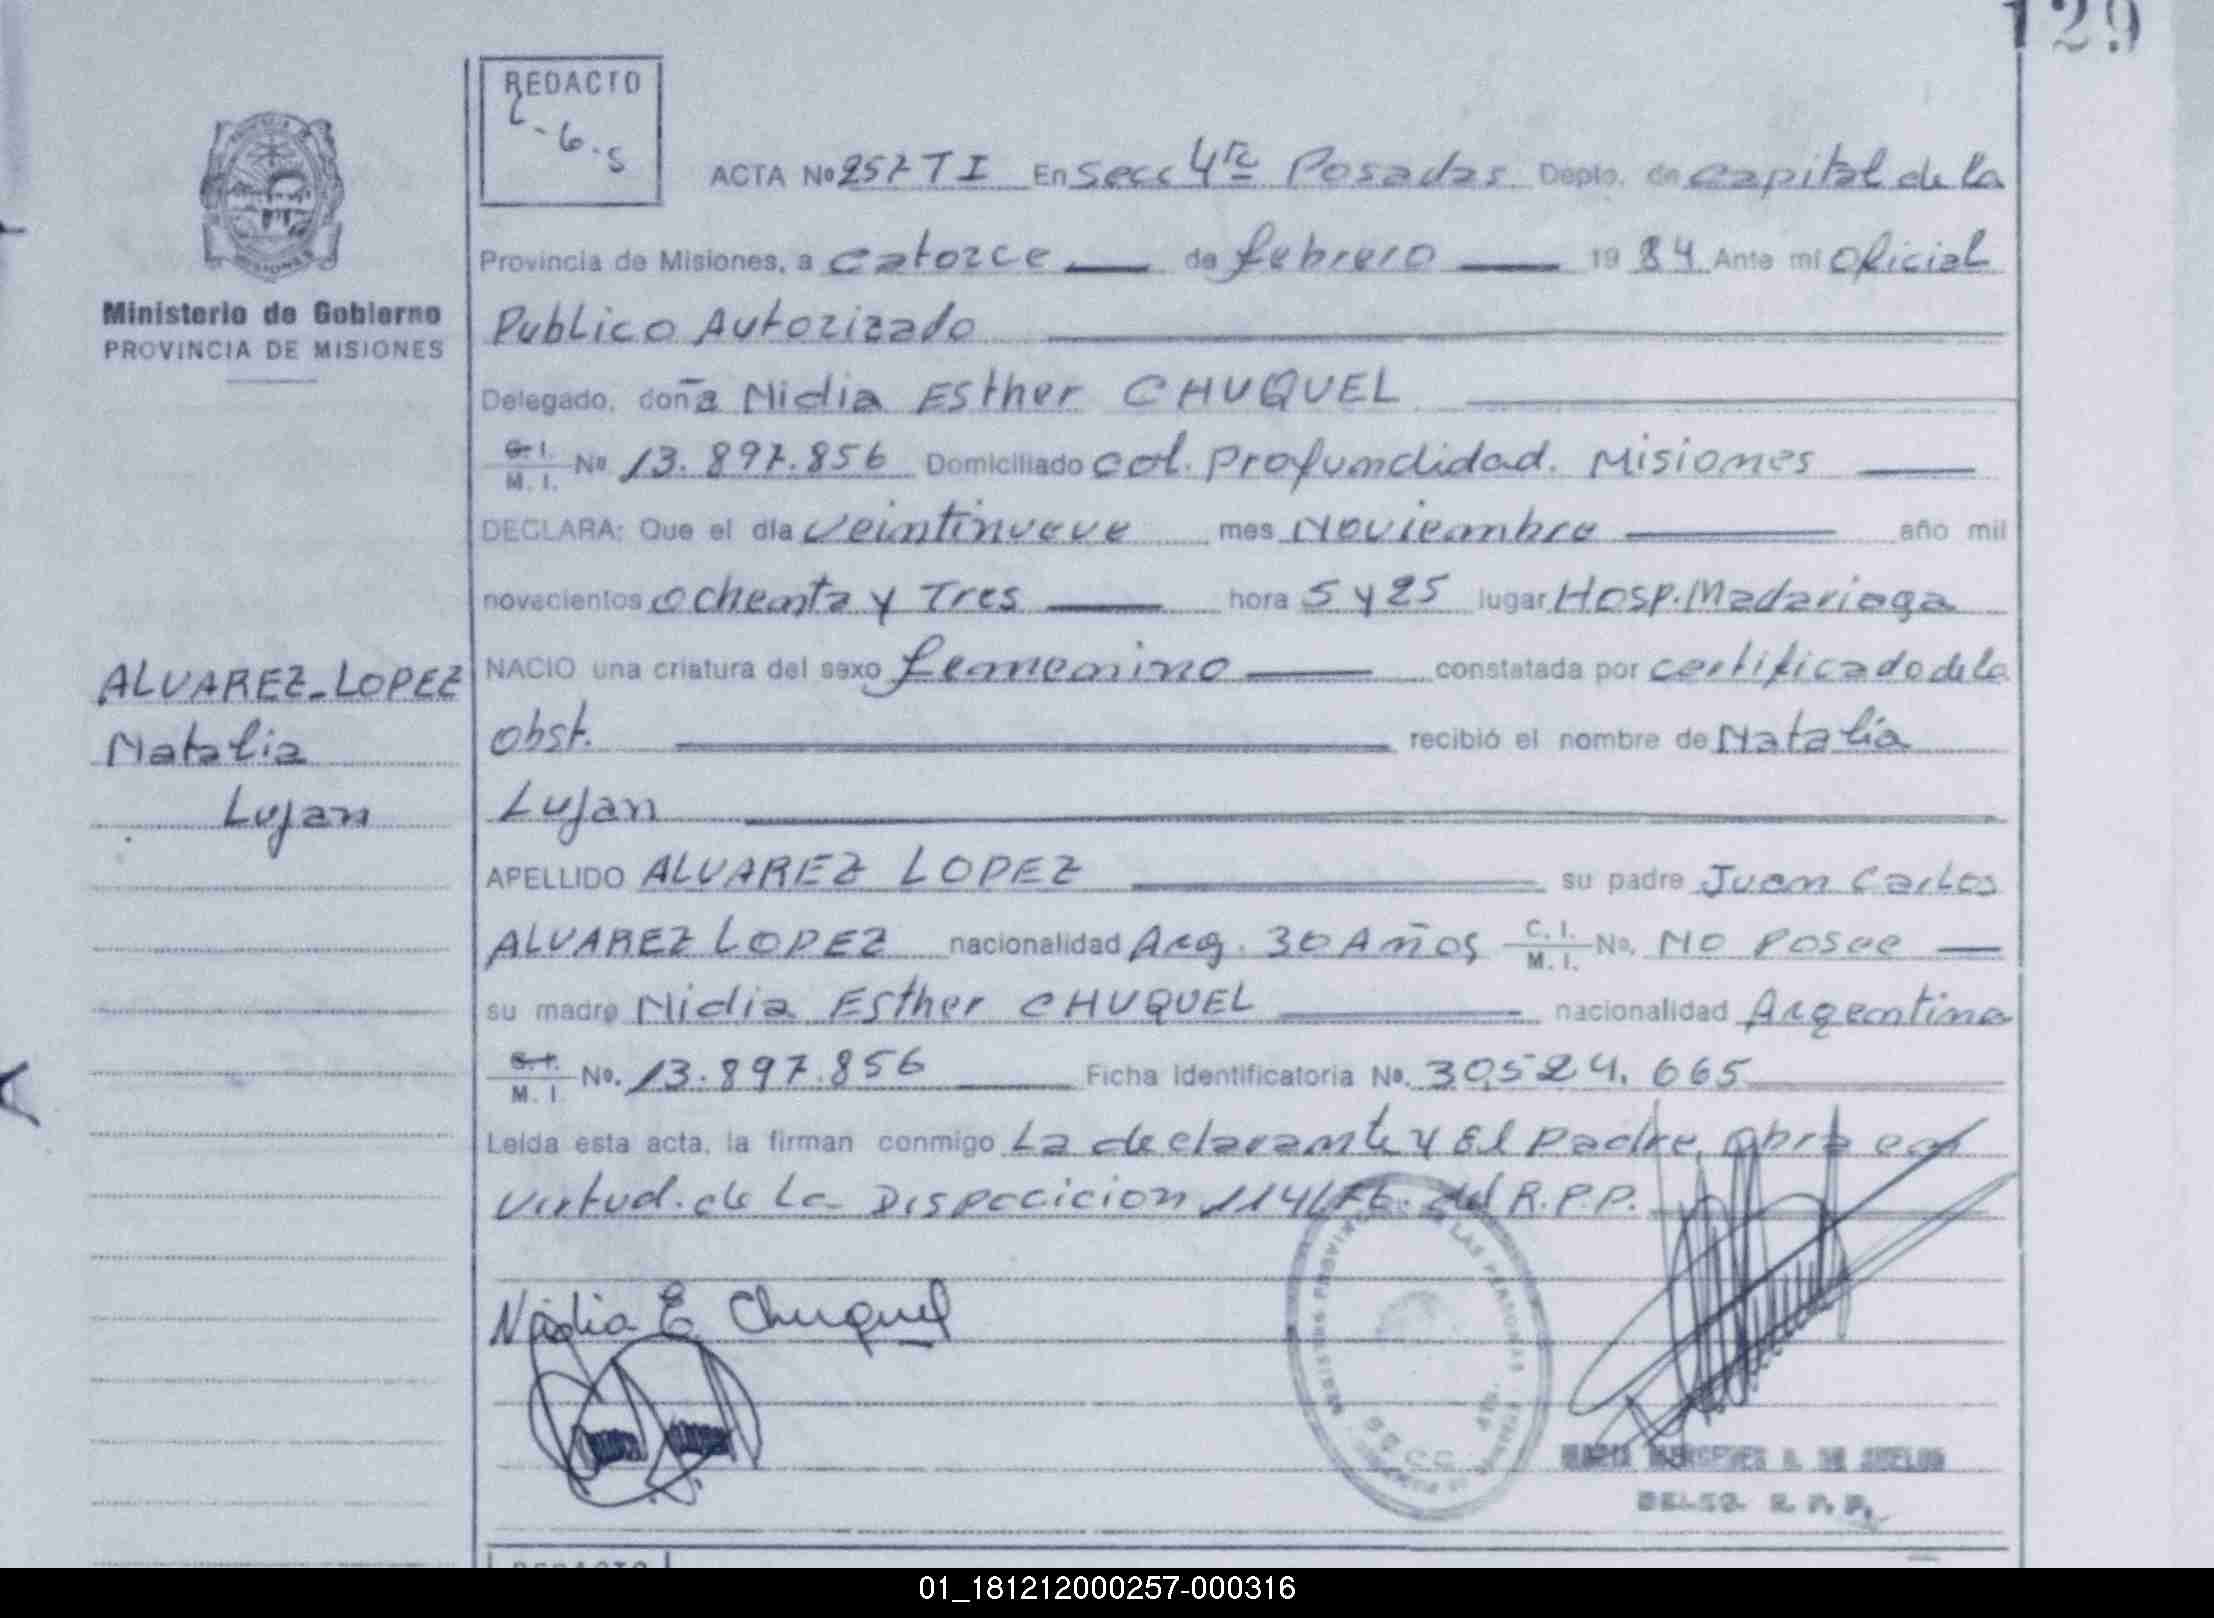 129
REDACTO
ACTA No 257 T I En Secc 4ta Posadas Depto. de Capital de la
Provincia de Misiones, a catorce de febrero 1984 Ante mi Oficial
Publico Autorizado
Ministerio de Gobierno
PROVINCIA DE MISIONES
Delegado, doña Nidia Esther CHUQUEL
C. I. M. I. No 13.897.856 Domiciliado Col. Profundidad. Misiones
DECLARA: Que el día veintinueve mes Noviembre año mil
novecientos ochenta y Tres hora 5 y 25 lugar Hosp. Madariaga
ALVAREZ-LOPEZ
Natalia
Lujan
NACIO una criatura del sexo femenino constatada por certificado de la
obst. recibió el nombre de Natalia
Lujan
APELLIDO ALVAREZ LOPEZ su padre Juan Carlos
ALVAREZ LOPEZ nacionalidad Arg. 30 Años C. I. M. I. No. No Posee
su madre Nidia Esther CHUQUEL nacionalidad Argentina
C. I. M. I. No. 13.897.856 Ficha Identificatoria No. 30.524.665
Leída esta acta, la firman conmigo La declarante y El Padre, obra en
virtud. de La Disposicion 114/76. del R.P.P.
Nidia E. Chuquel
DELEG. R. P. P.
REDACTO
01_181212000257-000316